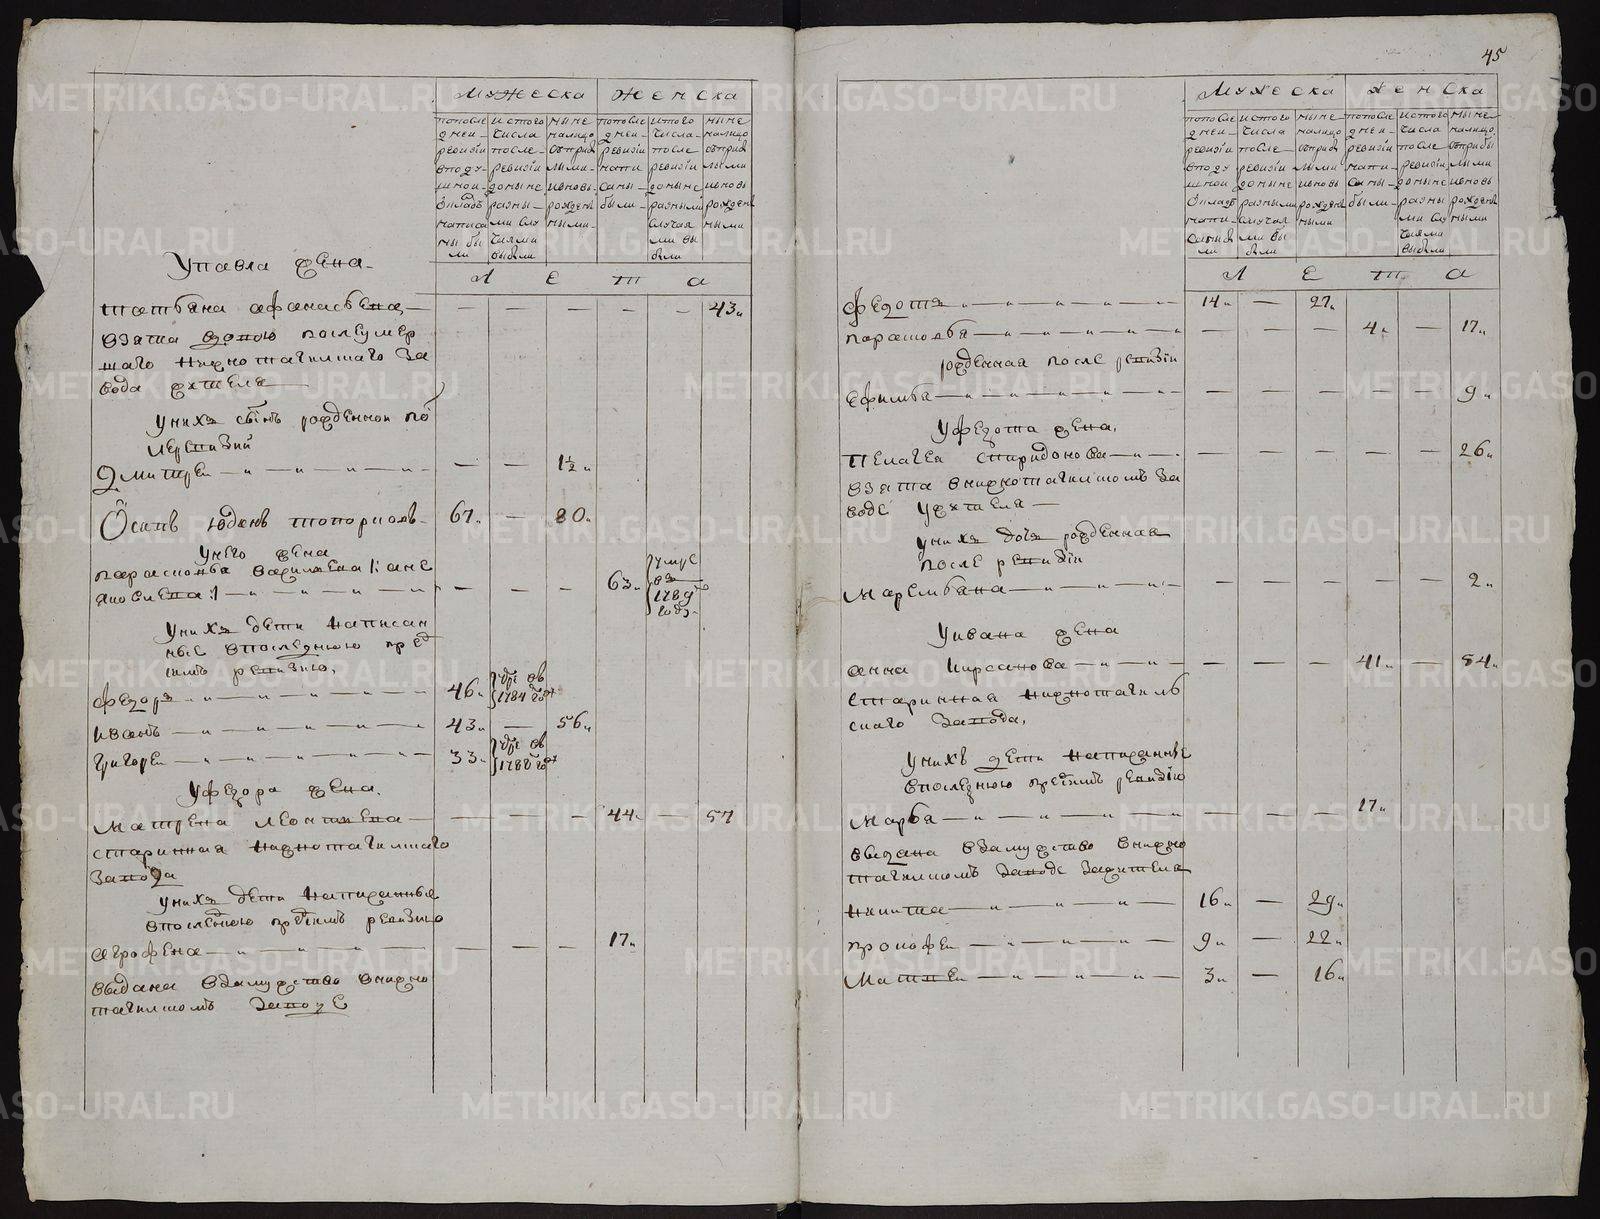 45
мужеска женска
попосле
дней
ревизіи
вподу
шной
окладъ
написа
ны бы
ли
истого
числа
после
ревизіи
доныне
разны
ми слу
чаями
выбыли
ныне
налицо
сприб
лыми
ивновь
рожден
ными
попосле
дней
ревизіи
напи
саны
были
истого
числа
после
ревизіи
доныне
разными
случая
ми вы
были
ныне
налицо
сприбы
лыми
ивновь
рожден
ными
Л Е Т А
Упавла жена
татьяна афанасьева 43
взята вдовою послеумер
шаго нижнотагилскаго за
вода жителя
унихъ сынъ рожденной по
слеревизий
Дмитрей 1 1/2
Осипъ юдинъ топорковъ 67 80
унего жена
парасковья василиева 63 умре
въ
1789
годъ
унихъ дети написан
ные впоследнюю пред
симъ ревизию
федоръ 46 умре въ
1784 год
иванъ 43 56
григорей 33 умре въ
1788 год
уфедора жена
матрена леонтиева 44 57
старинная нижнотагилскаго
завода
унихъ дети написанные
впоследнюю предсимъ ревизию
агрофена 17
выдана взамужство внижно
тагилскомъ заводе
мужеска женска
попосле
дней
ревизіи
вподу
шной
окладъ
напи
саны бы
ли
истого
числа
после
ревизіи
доныне
разными
случая
ми вы
были
ныне
налицо
сприб
лыми
ивновь
рожден
ными
попосле
дней
ревизіи
напи
саны
были
истого
числа
после
ревизіи
доныне
разны
ми слу
чаями
выбыли
ныне
налицо
сприбы
лыми
ивновь
рожден
ными
Л Е Т А
федотъ 14 27
парасковья 4 17
рожденная после ревизіи
Ефимья 9
уфедота жена
пелагея спиридонова 26
взята внижнотагилскомъ за
воде ужителя
унихъ дочь рожденная
после ревизіи
маремьяна 2
Уивана жена
анна кирсанова 41 54
старинная нижнотагиль
скаго завода
унихъ дети написанные
впоследнюю предсимъ ревизію
марья 17
выдана взамужство внижно
тагилскомъ заводе зажителя
никита 16 29
прокофей 9 22
матвей 3 16
METRIKI.GASO-URAL.RU